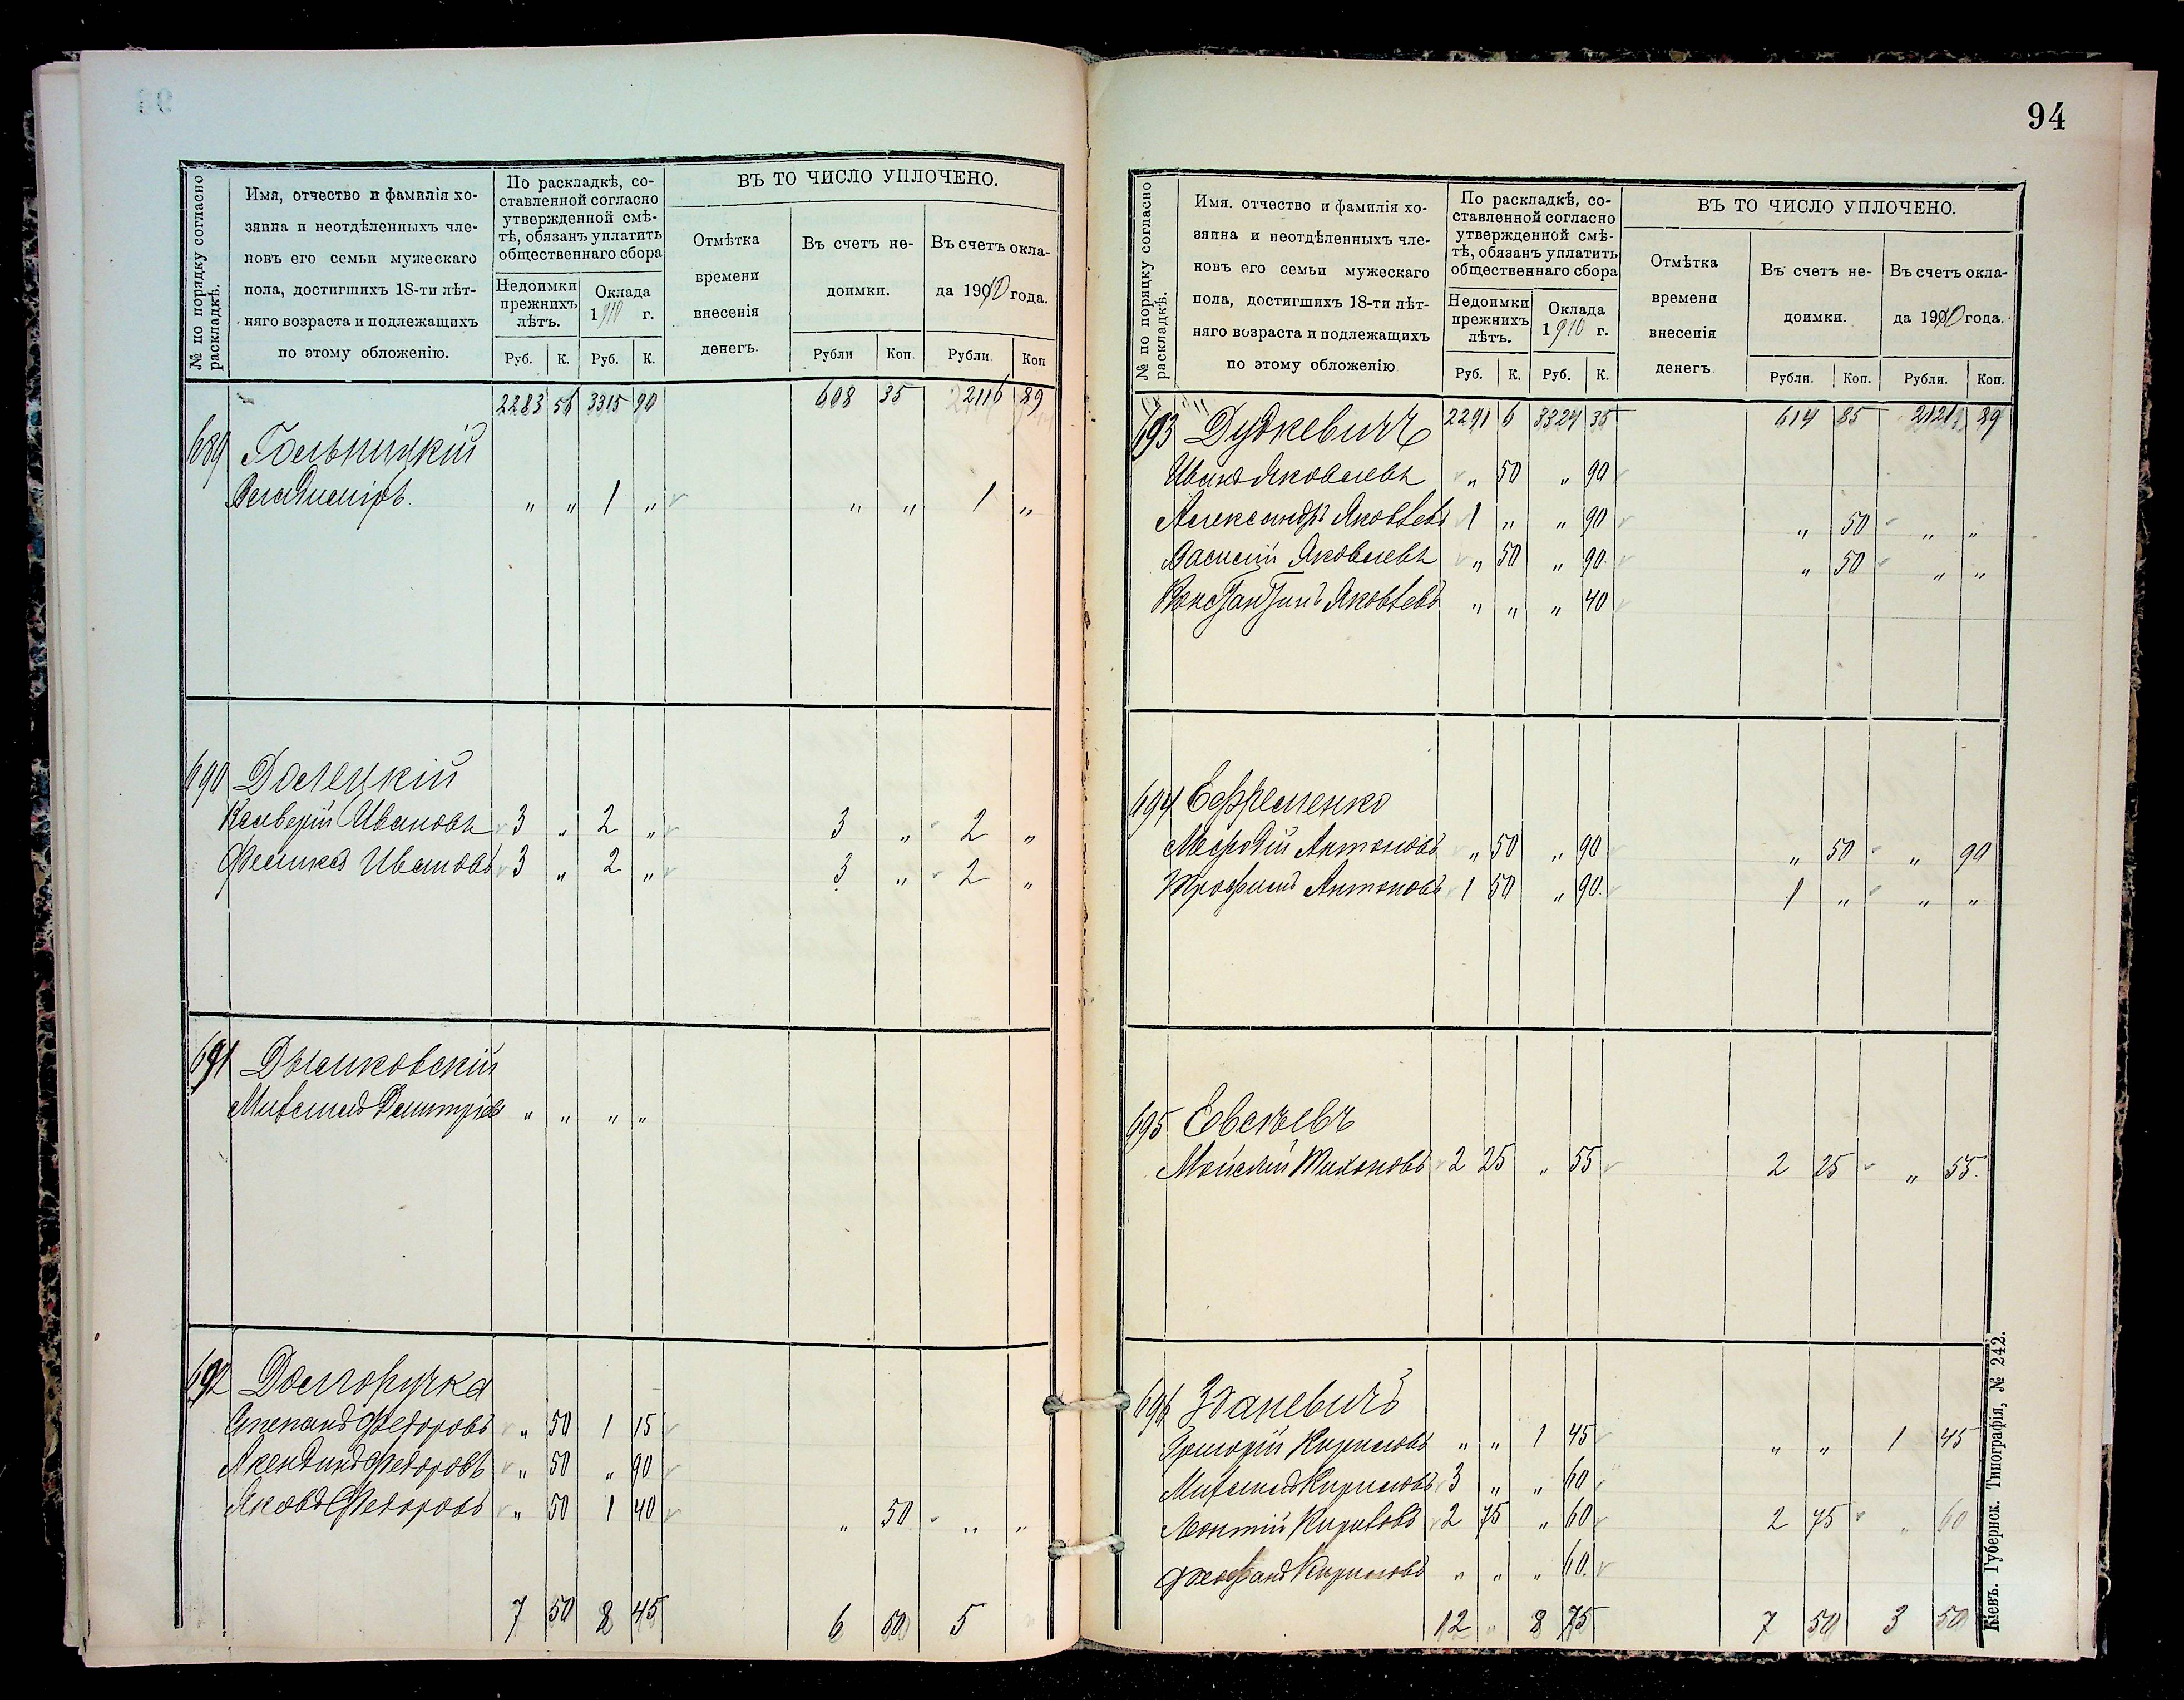 94
№ по порядку согласно раскладкѣ.
Имя, отчество и фамилія хо-
зяина и неотдѣленныхъ чле-
новъ его семьи мужескаго
пола, достигшихъ 18-ти лѣт-
няго возраста и подлежащихъ
по этому обложенію.
По раскладкѣ, со-
ставленной согласно
утвержденной смѣ-
тѣ, обязанъ уплатить
общественнаго сбора
Недоимки
прежнихъ
лѣтъ.
Оклада
1910 г.
Руб. К. Руб. К.
ВЪ ТО ЧИСЛО УПЛОЧЕНО.
Отмѣтка
времени
внесенія
денегъ.
Въ счетъ не-
доимки.
Въ счетъ окла-
да 1910 года.
Рубли Коп. Рубли. Коп
2283 56 3315 90 608 35 2116 89
689 Гольницкій
Владиміръ. " " 1 " " " 1 "
690 Долецкій
Ксаверій Ивановъ 3 " 2 " 3 " 2 "
Феликсъ Ивановъ 3 " 2 " 3 " 2 "
691 Дымковскій
Михаилъ Дмитріевъ " " " "
692 Долгоручка
Степанъ Федоровъ " 50 1 15
Акендинъ Федоровъ " 50 " 90
Яковъ Федоровъ " 50 1 40 " 50 " "
7 50 8 45 6 50 5
№ по порядку согласно раскладкѣ.
Имя. отчество и фамилія хо-
зяина и неотдѣленныхъ чле-
новъ его семьи мужескаго
пола, достигшихъ 18-ти лѣт-
няго возраста и подлежащихъ
по этому обложенію
По раскладкѣ, со-
ставленной согласно
утвержденной смѣ-
тѣ, обязанъ уплатить
общественнаго сбора
Недоимки
прежнихъ
лѣтъ.
Оклада
1910 г.
Руб. К. Руб. К.
ВЪ ТО ЧИСЛО УПЛОЧЕНО.
Отмѣтка
времени
внесенія
денегъ
Въ счетъ не-
доимки.
Въ счетъ окла-
да 1910 года.
Рубли. Коп. Рубли. Коп.
2291 6 3324 35 614 85 2121 89
693 Дудкевичъ
Иванъ Яковлевъ " 50 " 90
Александръ Яковлевъ 1 " " 90 " 50 " "
Василій Яковлевъ " 50 " 90. " 50 " "
Константинъ Яковлевъ " " " 40
694 Ефременко
Мефодій Антоновъ " 50 " 90 " 50 " 90
Трофимъ Антоновъ 1 50 " 90. 1 " " "
695 Евсѣевъ
Мойсей Тихоновъ 2 25 " 55 2 25 " 55.
696 Зданевичъ
Григорій Кириловъ " " 1 45 " " 1 45
Михаилъ Кириловъ 3 " " 60
Леонтій Кириловъ 2 75 " 60 2 75 " 60
Феофанъ Кириловъ " " " 60.
12 " 8 75 7 50 3 50
Кіевъ. Губернск. Типографія, № 242.